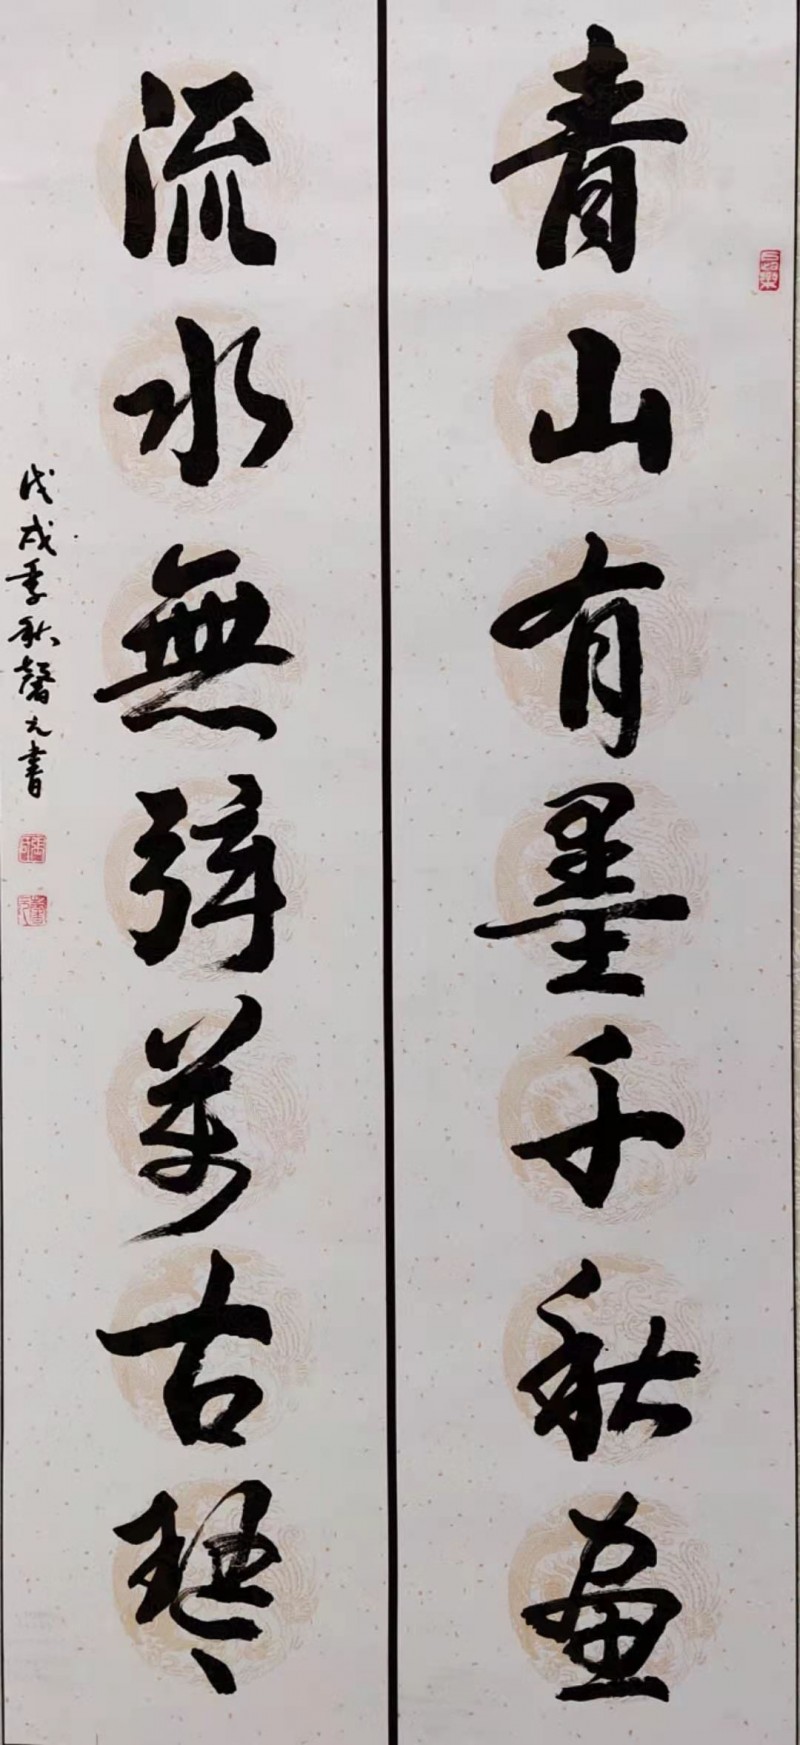 青山有墨千秋畫
流水無弦萬古琴
戊戌季秋馨元書